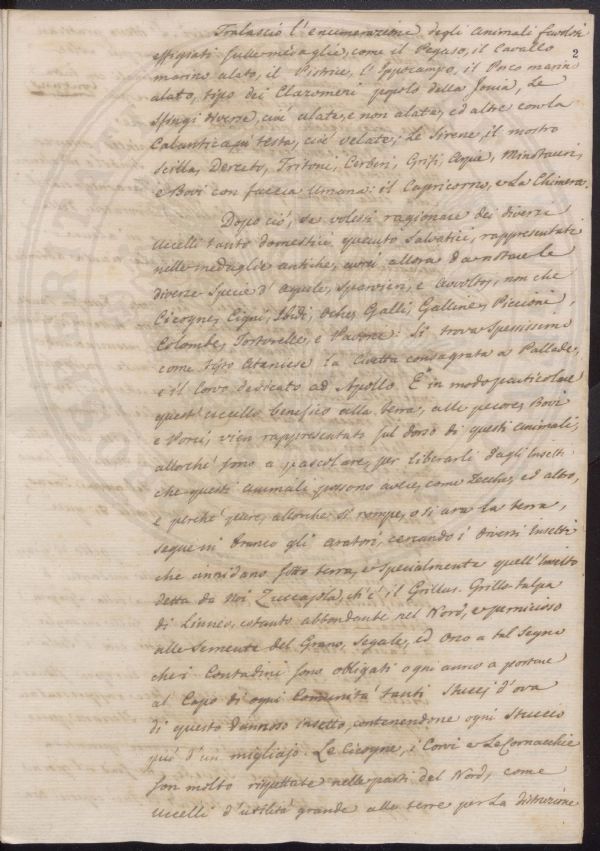 Tralascio l'enumerazione degli Animali favolosi
effigiati sulle medaglie, come il Pegaso, il Cavallo
2
marino alato, il Pistrice, l'Ippocampo, il Porco marin
alato, tipo dei Clazomeni popolo della Jonia, Le
Sfingi diverse, cioè alate, e non alate, ed altre con la
Calantica in testa, cioè velate; Le Sirene, il mostro
Scilla, Derceto, Tritoni, Cerberi, Grifi, Minotauri,
e Bovi con faccia Umana: il Capricorno, e La Chimera.
Dopo ciò, se volessi ragionare dei diversi
Uccelli tanto domestici quanto Salvatici, rappresentati
nelle medaglie antiche, avrei allora da notare le
diverse Specie d'Aquile, Sparvieri, e Avoltoj, non che
Cicogne, Cigni, Ibidi, Oche, Galli, Galline, Piccioni,
Colombe, Tortorelle, e Pavoni: Si trova Spessissimo
come tipo Ateniese la Civetta consagrata a Pallade,
e il Corvo dedicato ad Apollo. E' in modo particolare
quest'uccello benefico alla terra, alle pecore, Bovi
e Porci, vien rappresentato sul dorso di questi animali,
allorchè sono a pascolare, per liberarli dagli Insetti
che questi animali possono avere, come Zecche, ed altro,
e perchè pure, allorchè si rompe, o si ara la terra,
segue in branco gli aratori, cercando i diversi Insetti
che annidano sotto terra, e specialmente quell'Insetto
detto da Noi Zuccajola, ch'è il Grillus Grillo-talpa
di Linneo, cotanto abbondante nel Nord, e pernicioso
alle Semente del Grano, Segale, ed Orzo a tal Segno
che i Contadini sono obbligati ogni anno a portare
al Capo di ogni Comunità tanti Stuccj d'ova
di questo dannoso insetto, contenendone ogni Stuccio
più d'un migliajo. Le Cicogne, i Corvi e Le Cornacchie
son molto rispettate nelle parti del Nord, come
Uccelli d'utilità grande alle terre per La distruzione